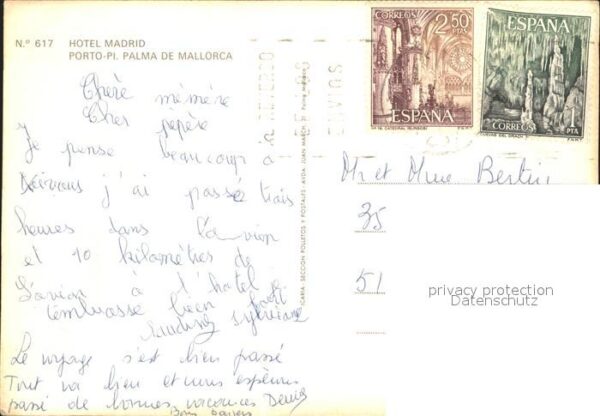 N.º 617 HOTEL MADRID
PORTO-PI. PALMA DE MALLORCA
Chère mémère
Cher pepère
Je pense beaucoup à
j'ai passé trais
heures dans l'avion
et 10 kilomètres de
L'avion à l'hotel je
t'embrasse bien fort
Sylviane
Le voyage s'est bien passé
Tout va bien et nous espérons
passé de bonnes vacances Denis
Bons baisers
CORREOS 2,50
PTAS
ESPAÑA
ESPAÑA
CORREOS 1
PTA
Mr et Mme Bertin
35
51
privacy protection
Datenschutz